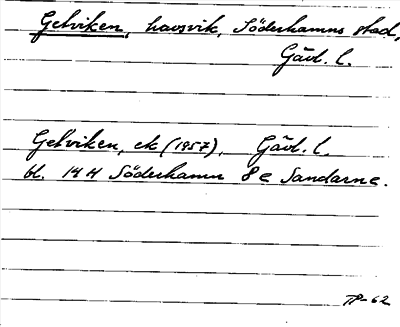 Getviken, havsvik, Söderhamns stad,
Gävl. l.
Getviken, ek (1957), Gävl. l.
bl. 14 H Söderhamn 8 e Sandarne.
TP-62